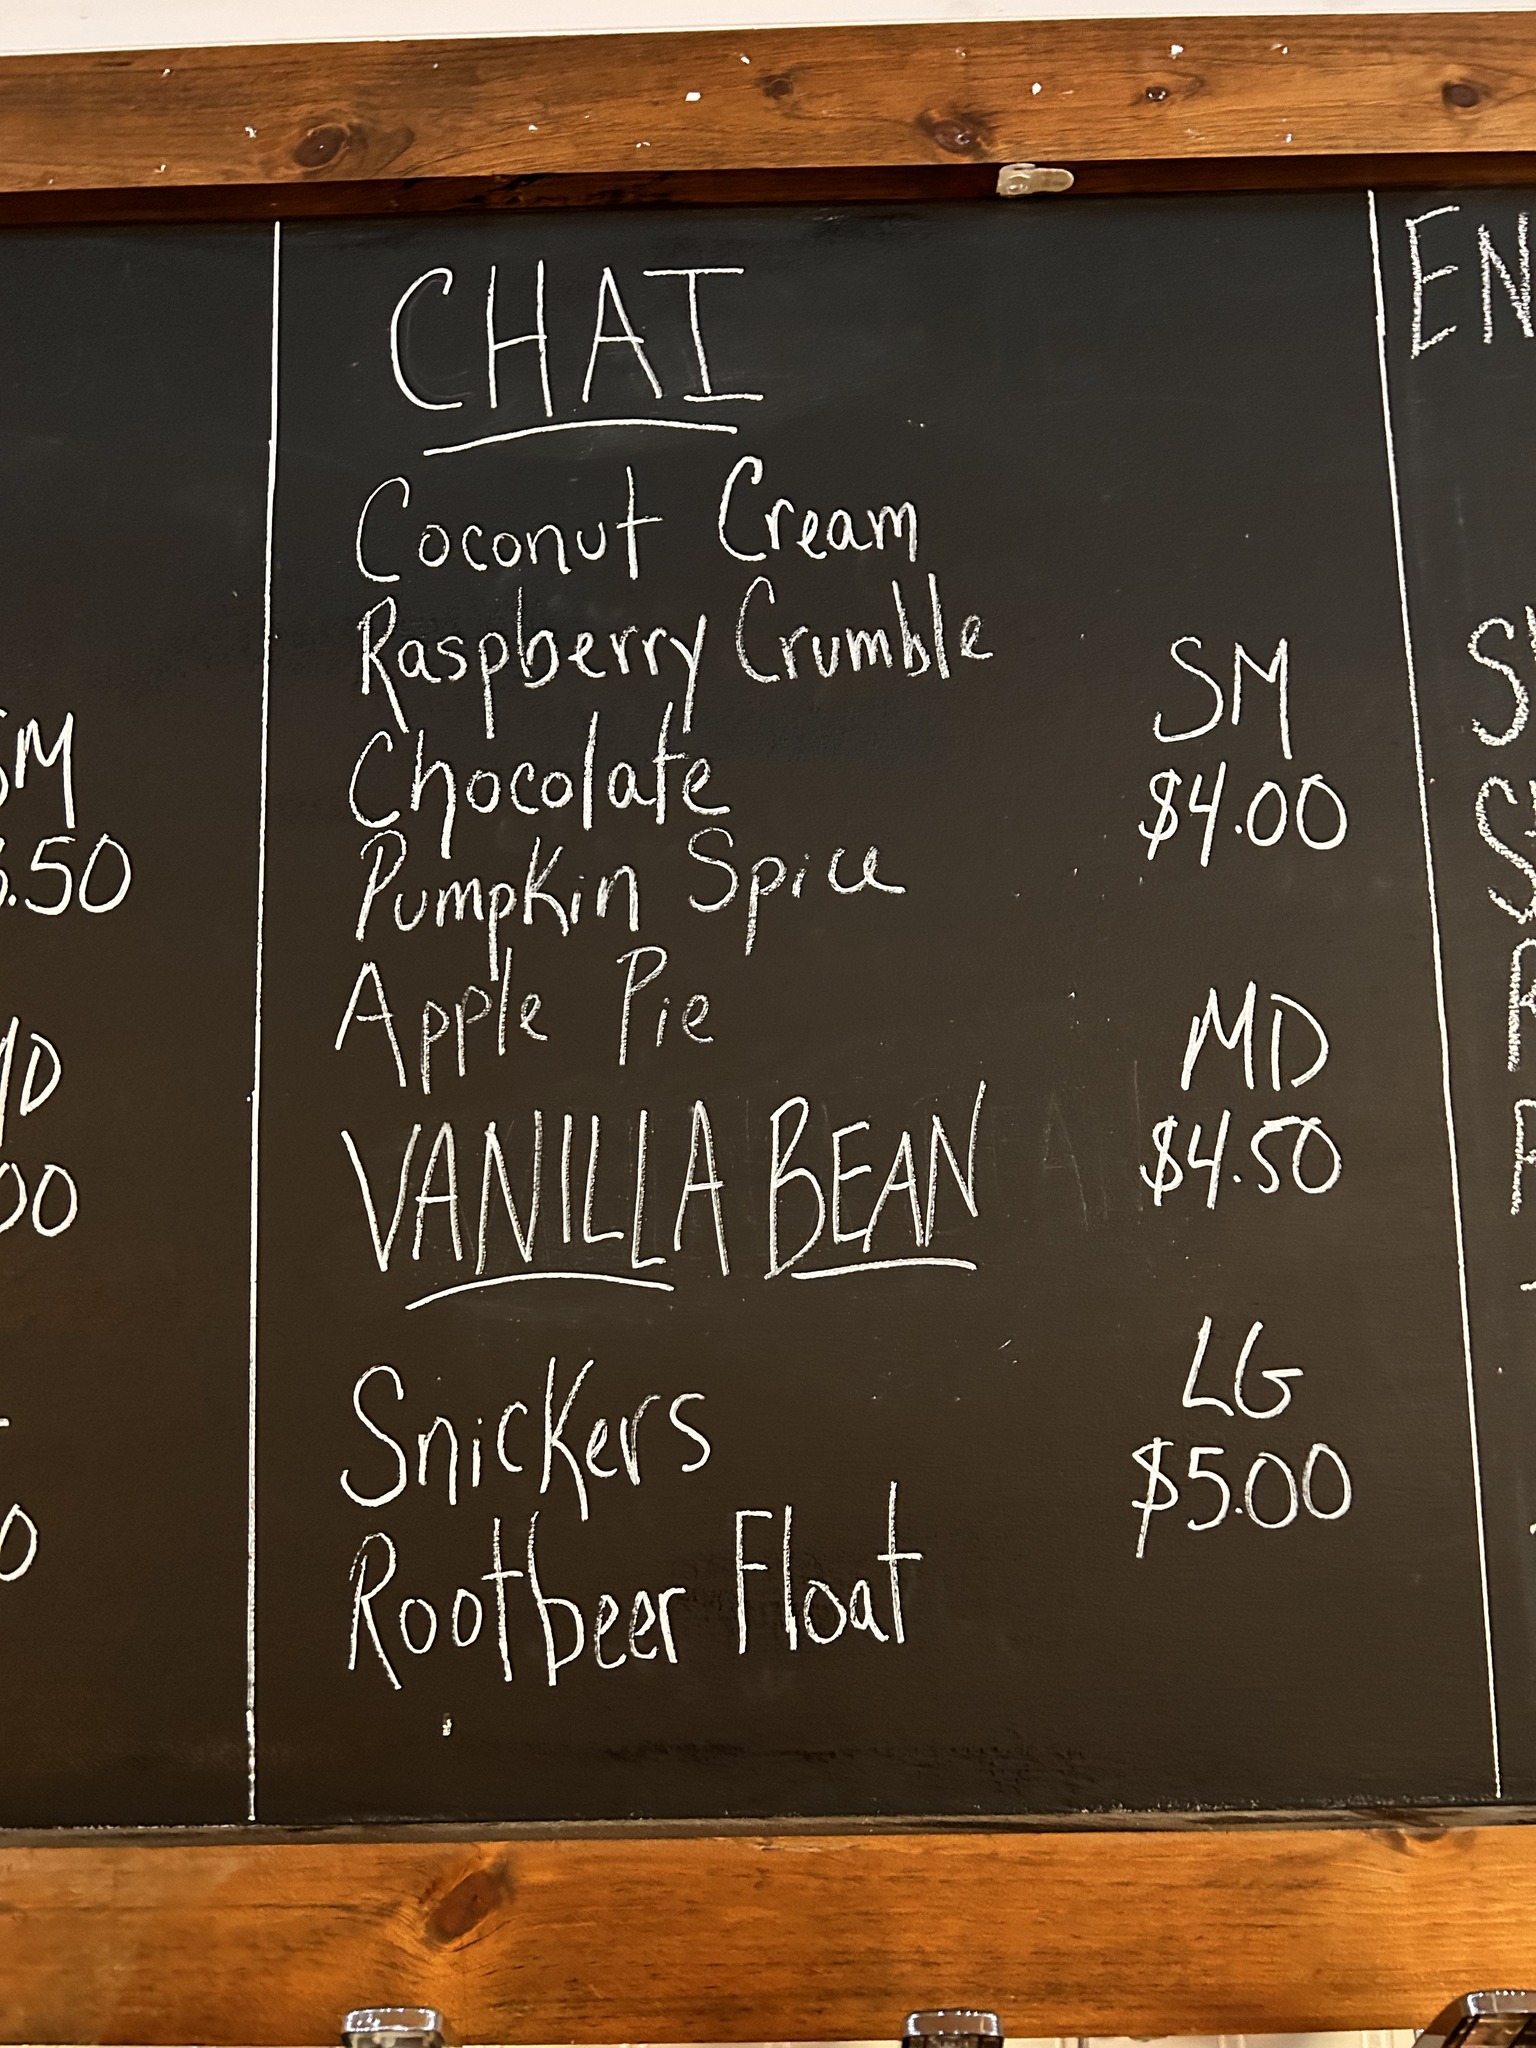 CHAI
Coconut Cream
Raspberry Crumble
Chocolate
Pumpkin Spice
Apple Pie
VANILLA BEAN
Snickers
Rootbeer Float
SM
$4.00
MD
$4.50
LG
$5.00
SM
.50
00
EN